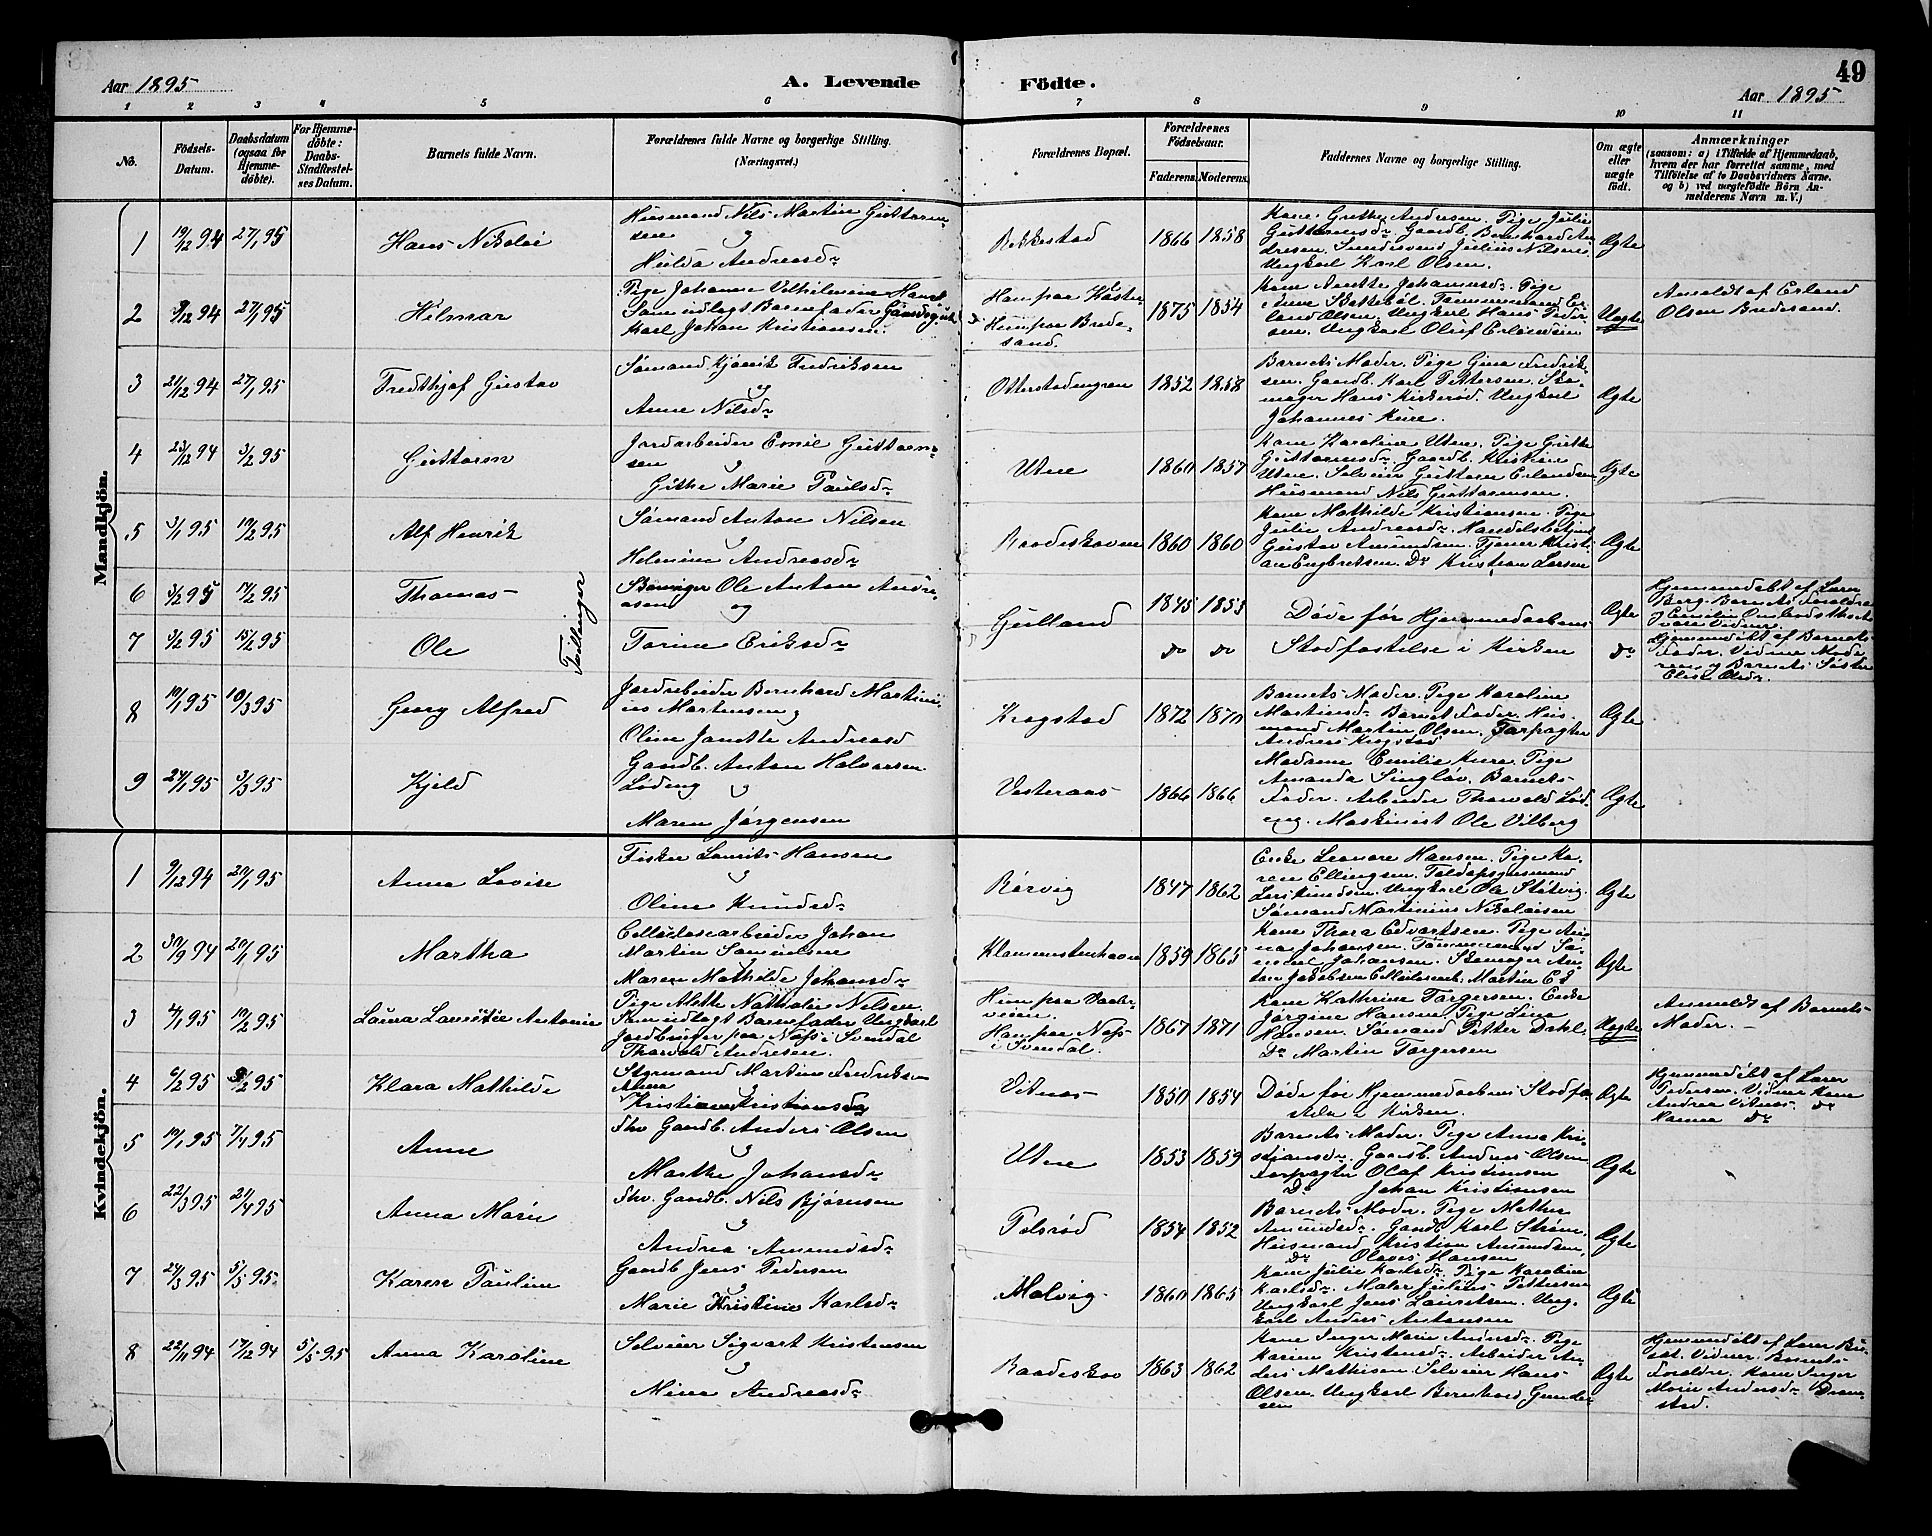 Aar 1895
A. Levende
Födte.
49
Aar 1895
1 2 3 4 5 6 7 8 9 10 11
No.
Födsels-
Datum.
Daabsdatum
(ogsaa for
Hjemme-
döbte).
For Hjemme-
döbte:
Daabs-
Stadfæstel-
ses Datum.
Barnets fulde Navn.
Forældrenes fulde Navne og borgerlige Stilling.
(Næringsvei.)
Forældrenes Bopæl.
Forældrenes
Födselsaar.
Faderens. Moderens.
Faddernes Navne og borgerlige Stilling.
Om ægte
eller
uægte
födt.
Anmærkninger
(saasom: a) i Tilfælde af Hjemmedaab,
hvem der har forrettet samme, med
Tilföielse af to Daabsvidners Navne.
og b) ved uægtefödte Börn An-
melderens Navn m. V.)
Mandkjön.
1 19/12 94 27/1 95 Hans Nikolai
Husmand Nils Martin Guttorm-
sen
og
Hulda Andreasdr
Rekkestad 1866 1858
Kone Grethe Andresen. Pige Julie
Guttormsdr. Gaardb. Bernhard An-
dresen. Julius Nilsen
Ungkarl Karl Olsen.
Ægte
2 9/12 94 27/1 95 Hilmar
Pige Johanne Vilhelmine Hansd
Som udlagt Barnefader Gaardsgut
Karl Johan Kristiansen
Hun paa Brede-
sand.
1875 1854
Kone Anethe Johannesdr. Pige
Tømmermand Er-
land Olsen. Ungkarl Hans Peder-
sen. Ungkarl Oluf Erlandsen
Uægte
Anmeldt af Erland
Olsen Bredesand.
3 21/12 94 27/1 95 Fredthjof Gustav
Sømand Kjønik Fredriksen
og
Anne Nilsdr
Otterstadengen 1852 1858
Barnets Moder. Pige Gina Fredrik-
sen. Gaardb. Karl Pettersen. Sko-
mager Hans Kirkerød. Ungkarl
Johannes Kure.
Ægte
4 23/12 94 3/2 95 Guttorm
Jordarbeider Emil Guttorm-
sen
og
Githe Marie Paulsdr
Utne 1860 1857
Kone Karoline Utne. Pige Grethe
Guttormsdr. Gaardb. Kristian
Utne. Selveier Guttorm Erlandsen
Husmand Nils Guttormsen.
Ægte
5 3/1 95 10/2 95 Alf Henrik
Sømand Anton Nilsen
og
Helmine Andreasdr
Raadeskoven 1860 1860
Kone Mathilde Kristiansen. Pige
Julie Andreasdr. Handelsbetjent
Gustav Amundsen. Tjener Krist-
ian Engbretsen. Do Kristian Larsen
Ægte
6 3/2 95 17/2 95 Thomas
Tvillinger
Ole Anton Andre-
asen og
Gulland 1845 1853
Døde før Hjemmedaabens
Ægte
Hjemmedøbt af Lærer
Berg. Barnets Forældre
7 3/2 95 15/2 95 Ole
Torine Eriksdr
Do Do
Stadfæstelse i Kirken
Do
Hjemmedøbt af Barnets
Fader. Vidner Mode-
ren og Barnets Søster
Elise Olsdr.
8 19/1 95 10/3 95 Georg Alfred
Jordarbeider Bernhard Martini-
us Martensen og
Oline Janette Andreasd
Krogstad 1872 1870
Barnets Moder. Pige Karoline
Martinsdr. Barnets Fader. Hus-
mand Martin Olsen. Forpagter
Andreas Krogstad
Ægte
9 27/1 95 3/3 95 Kjeld
Gaardb. Anton Halvorsen
Lødeng og
Maren Jørgensen
Vesteraas 1866 1866
Madame Emilie Kure. Pige
Amanda Singløv. Barnets
Fader. Arbeider Thorvald Lød-
eng. Maskinist Ole Vilberg
Ægte
Kvindekjön.
1 9/12 94 20/1 95 Anna Lovise
Fisker Laurits Hansen
og
Oline Knudsdr
Rørvig 1847 1862
Enke Leonore Hansen. Pige Ka-
ren Ellingsen. Toldopsynsmand
Ungkarl Ole Støtvig.
Sømand Martinius Nikolaisen
Ægte
2 30/9 94 20/1 95 Martha
Cellulosearbeider Johan
Martin Samuelsen
Maren Mathilde Johansdr
1859 1865
Kone Thora Edvartsen. Pige An-
na Johansen. Tømmermand Sa-
muel Johansen. Skomager An-
ton Jakobsen
Ægte
3 4/1 95 10/2 95 Laura Lovise Antonie
Pige Alette Nathalie Nilsen
Som udlagt Barnefader Ungkarl
Jordbruger paa Næs i Svendal
Thorvald Andresen.
Han paa Næs
i Svendal.
1867 1871
Kone Kathrine Torgersen. Enke
Jørgine Hansen. Pige Lina
Hansen. Sømand Petter Dahl.
Do Martin Torgersen
Uægte
Anmeldt af Barnets
Moder.
4 6/2 95 8/2 95 Klara Mathilde
Styrmand Martin Fredriksen
Anna
Kristiane Kristiansdr
Vitnæs 1850 1854
Døde før Hjemmedaabens Stadfæ-
stelse i Kirken.
Ægte
Hjemmedøbt af Lærer
Pedersen. Vidner Kone
Andrea Vitnæs. Do
Hanna Do
5 19/1 95 7/4 95 Anne
Fhv. Gaardb. Anders Olsen
og
Marthe Johansdr
Utne 1853 1859
Barnets Moder. Pige Anna Kri-
stiansdr. Gaardb. Andreas Olsen
Forpagter Olaf Kristiansen
Do Johan Kristiansen
Ægte
6 22/3 95 21/4 95 Anna Marie
Fhv. Gaardb. Nils Bjørnsen
og
Andrea Amundsdr
1854 1852
Barnets Moder. Pige Mathea
Amundsdr. Gaardb. Karl Strøm.
Husmand Kristian Amundsen.
Do Olavus Hansen
Ægte
7 24/3 95 5/5 95 Karen Pauline
Gaardb. Jens Pedersen
og
Marie Kristine Karlsdr
Malvig 1860 1865
Kone Julie Karlsdr. Pige Karoline
Karlsdr. Maler Julius Pettersen
Ungkarl Jens Lauritsen. Ung-
karl Anders Antonsen
Ægte
8 22/11 94 17/12 94 5/5 95 Anna Karoline
Selveier Sigvart Kristensen
og
Mina Andreasdr
Raadeskov 1863 1862
Kone Inger Marie Andersdr. Pige
Karine Kristensdr. Arbeider An-
ders Mathisen. Selveier Hans
Olsen. Ungkarl Bernhard Gunder-
sen
Ægte
Hjemmedøbt af Lærer
Vidner Barnets
Forældre. Kone Inger
Marie Andersdr